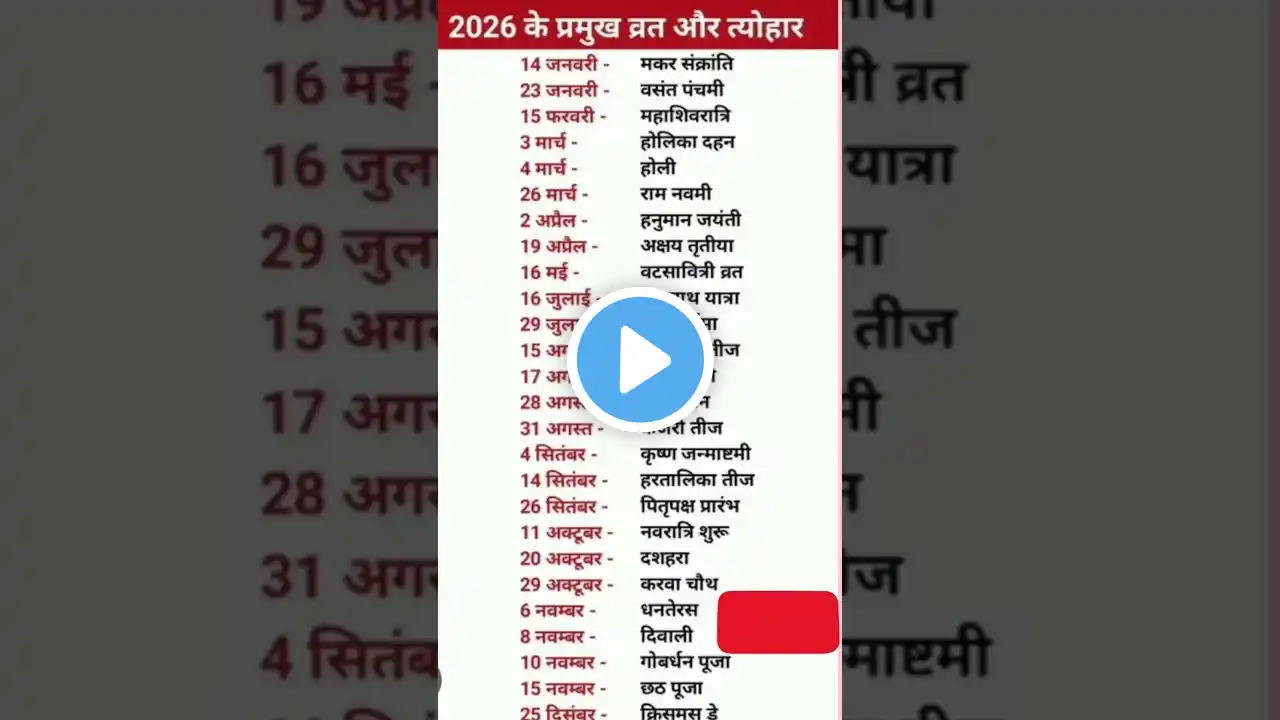 2026 के प्रमुख व्रत और त्योहार
14 जनवरी - मकर संक्रांति
23 जनवरी - वसंत पंचमी
15 फरवरी - महाशिवरात्रि
3 मार्च - होलिका दहन
4 मार्च - होली
26 मार्च - राम नवमी
2 अप्रैल - हनुमान जयंती
19 अप्रैल - अक्षय तृतीया
16 मई - वटसावित्री व्रत
16 जुलाई - यात्रा
29
15 तीज
17
28
31 अगस्त - तीज
4 सितंबर - कृष्ण जन्माष्टमी
14 सितंबर - हरतालिका तीज
26 सितंबर - पितृपक्ष प्रारंभ
11 अक्टूबर - नवरात्रि शुरू
20 अक्टूबर - दशहरा
29 अक्टूबर - करवा चौथ
6 नवम्बर - धनतेरस
8 नवम्बर - दिवाली
10 नवम्बर - गोबर्धन पूजा
15 नवम्बर - छठ पूजा
25 दिसंबर - क्रिसमस डे